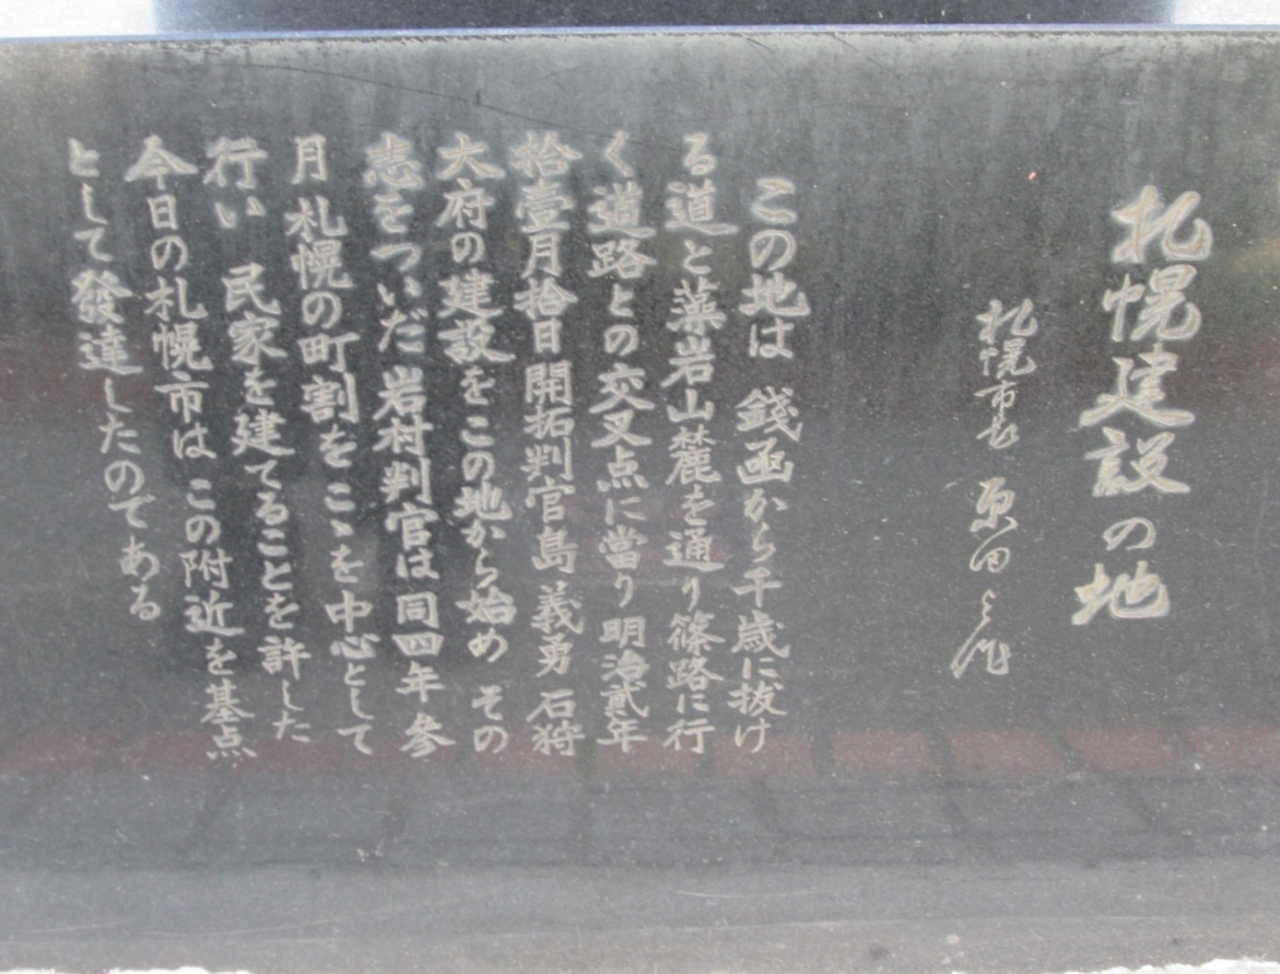 札幌建設の地
札幌市長 原田与作
この地は 錢函から千歳に抜け
る道と藻岩山麓を通り篠路に行
く道路との交叉点に當り 明治貳年
拾壹月拾日開拓判官島義勇 石狩
大府の建設をこの地から始め その
志をついだ岩村判官は同四年参
月 札幌の町割をこゝを中心として
行い 民家を建てることを許した
今日の札幌市は この附近を基点
として發達したのである